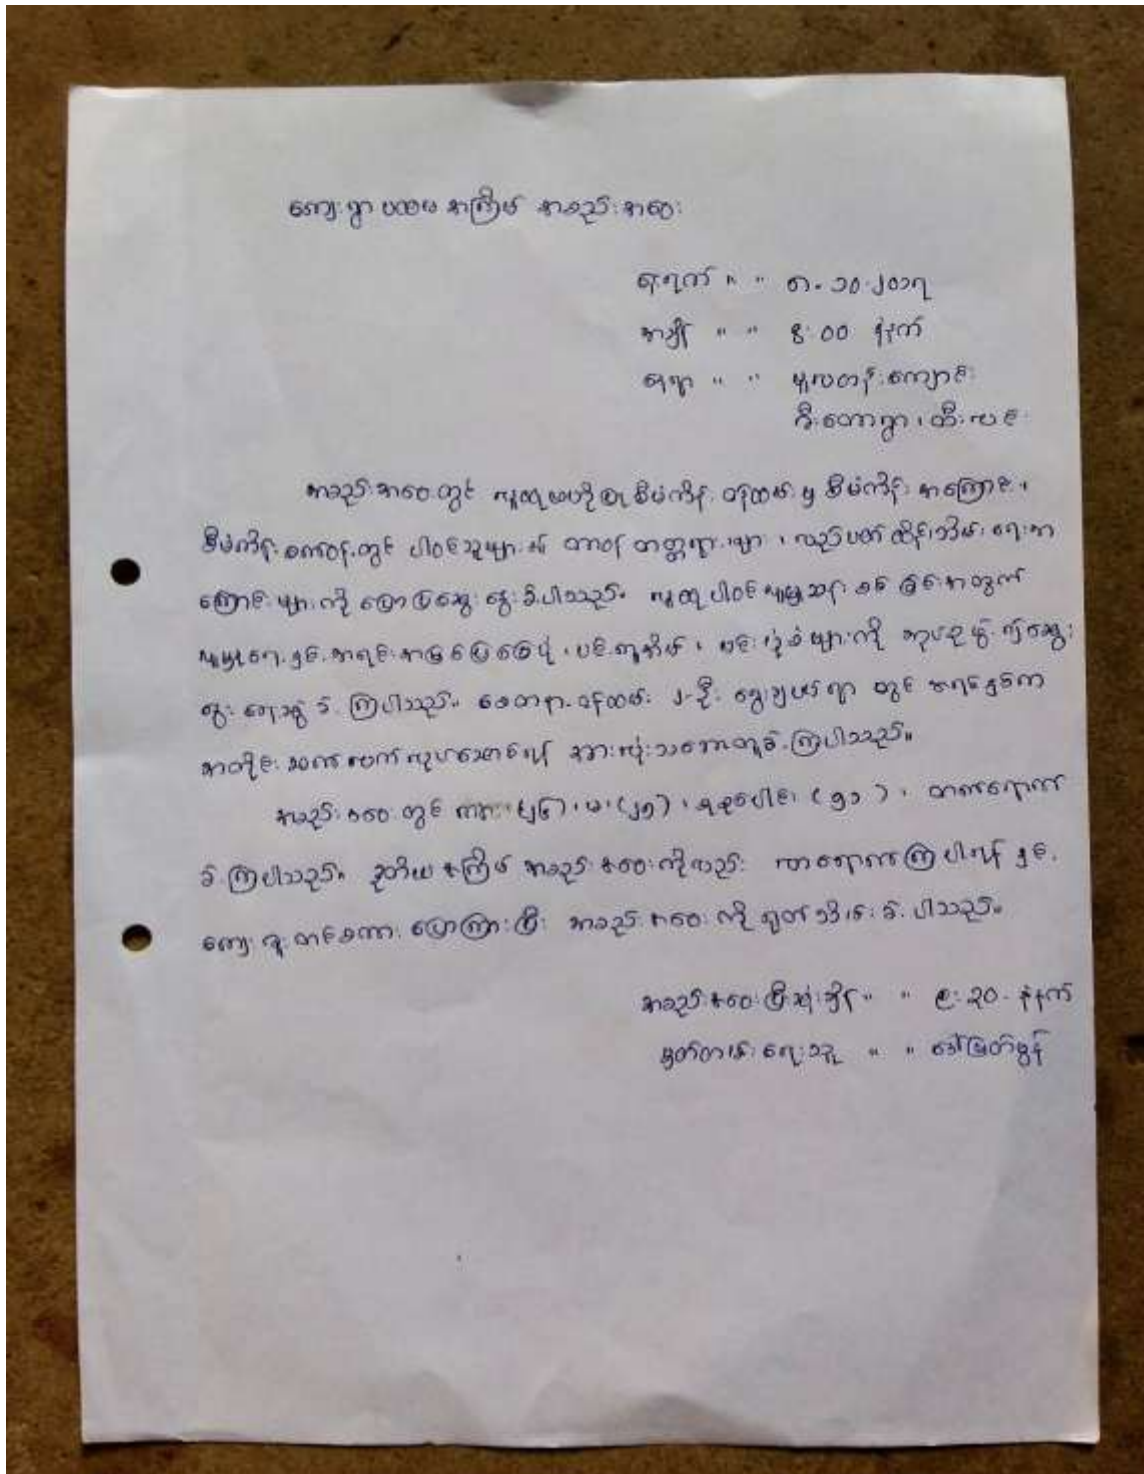 ကျေးရွာ ပထမ အကြိမ် အစည်းအဝေး
ရက် " " ၈.၁၀.၂၀၁၇
အချိန် " " ၈:၀၀ နံနက်
နေရာ " " မူလတန်းကျောင်း
ဇီးတောရွာ၊ ထီးလင်း
အစည်းအဝေးတွင် လူထုဗဟိုပြုစီမံကိန်း ဝန်ထမ်းမှ စီမံကိန်းအကြောင်း၊
စီမံကိန်းစက်ဝန်းတွင် ပါဝင်သူများ၏ တာဝန် ဝတ္တရားများ၊ လည်ပတ် ထိန်းသိမ်းရေးအ
ကြောင်းများကို ပြောပြဆွေးနွေးခဲ့ပါသည်။ လူထုပါဝင် လူမှုဆန်းစစ်ခြင်းအတွက်
လူမှုရေးနှင့် အရင်းအမြစ်ပြမြေပုံ၊ ပင်ကူအိမ်၊ ပုံများကို အုပ်စုဖွဲ့၍ ဆွေး
နွေးရေးဆွဲခဲ့ကြပါသည်။ စေတနာ့ဝန်ထမ်း ၂-ဦး ရွေးချယ်ရာတွင် ယရင်နှစ်က
အတိုင်း ဆက်လက်လုပ်ဆောင်ရန် အားလုံးသဘောတူခဲ့ကြပါသည်။
အစည်းအဝေးတွင် ကျား၊ မ၊ (၂၅)၊ စုစုပေါင်း (၅၁)၊ တက်ရောက်
ခဲ့ကြပါသည်။ ဒုတိယအကြိမ် အစည်းအဝေးကိုလည်း တက်ရောက်ကြပါရန် နှင့်
ကျေးဇူးတင်စကား ပြောကြားပြီး အစည်းအဝေးကို ရုတ်သိမ်းခဲ့ပါသည်။
အစည်းအဝေးပြီးဆုံးချိန် " " ၉:၃၀ နံနက်
မှတ်တမ်းရေးသူ " " ဒေါ်မြတ်မွန်